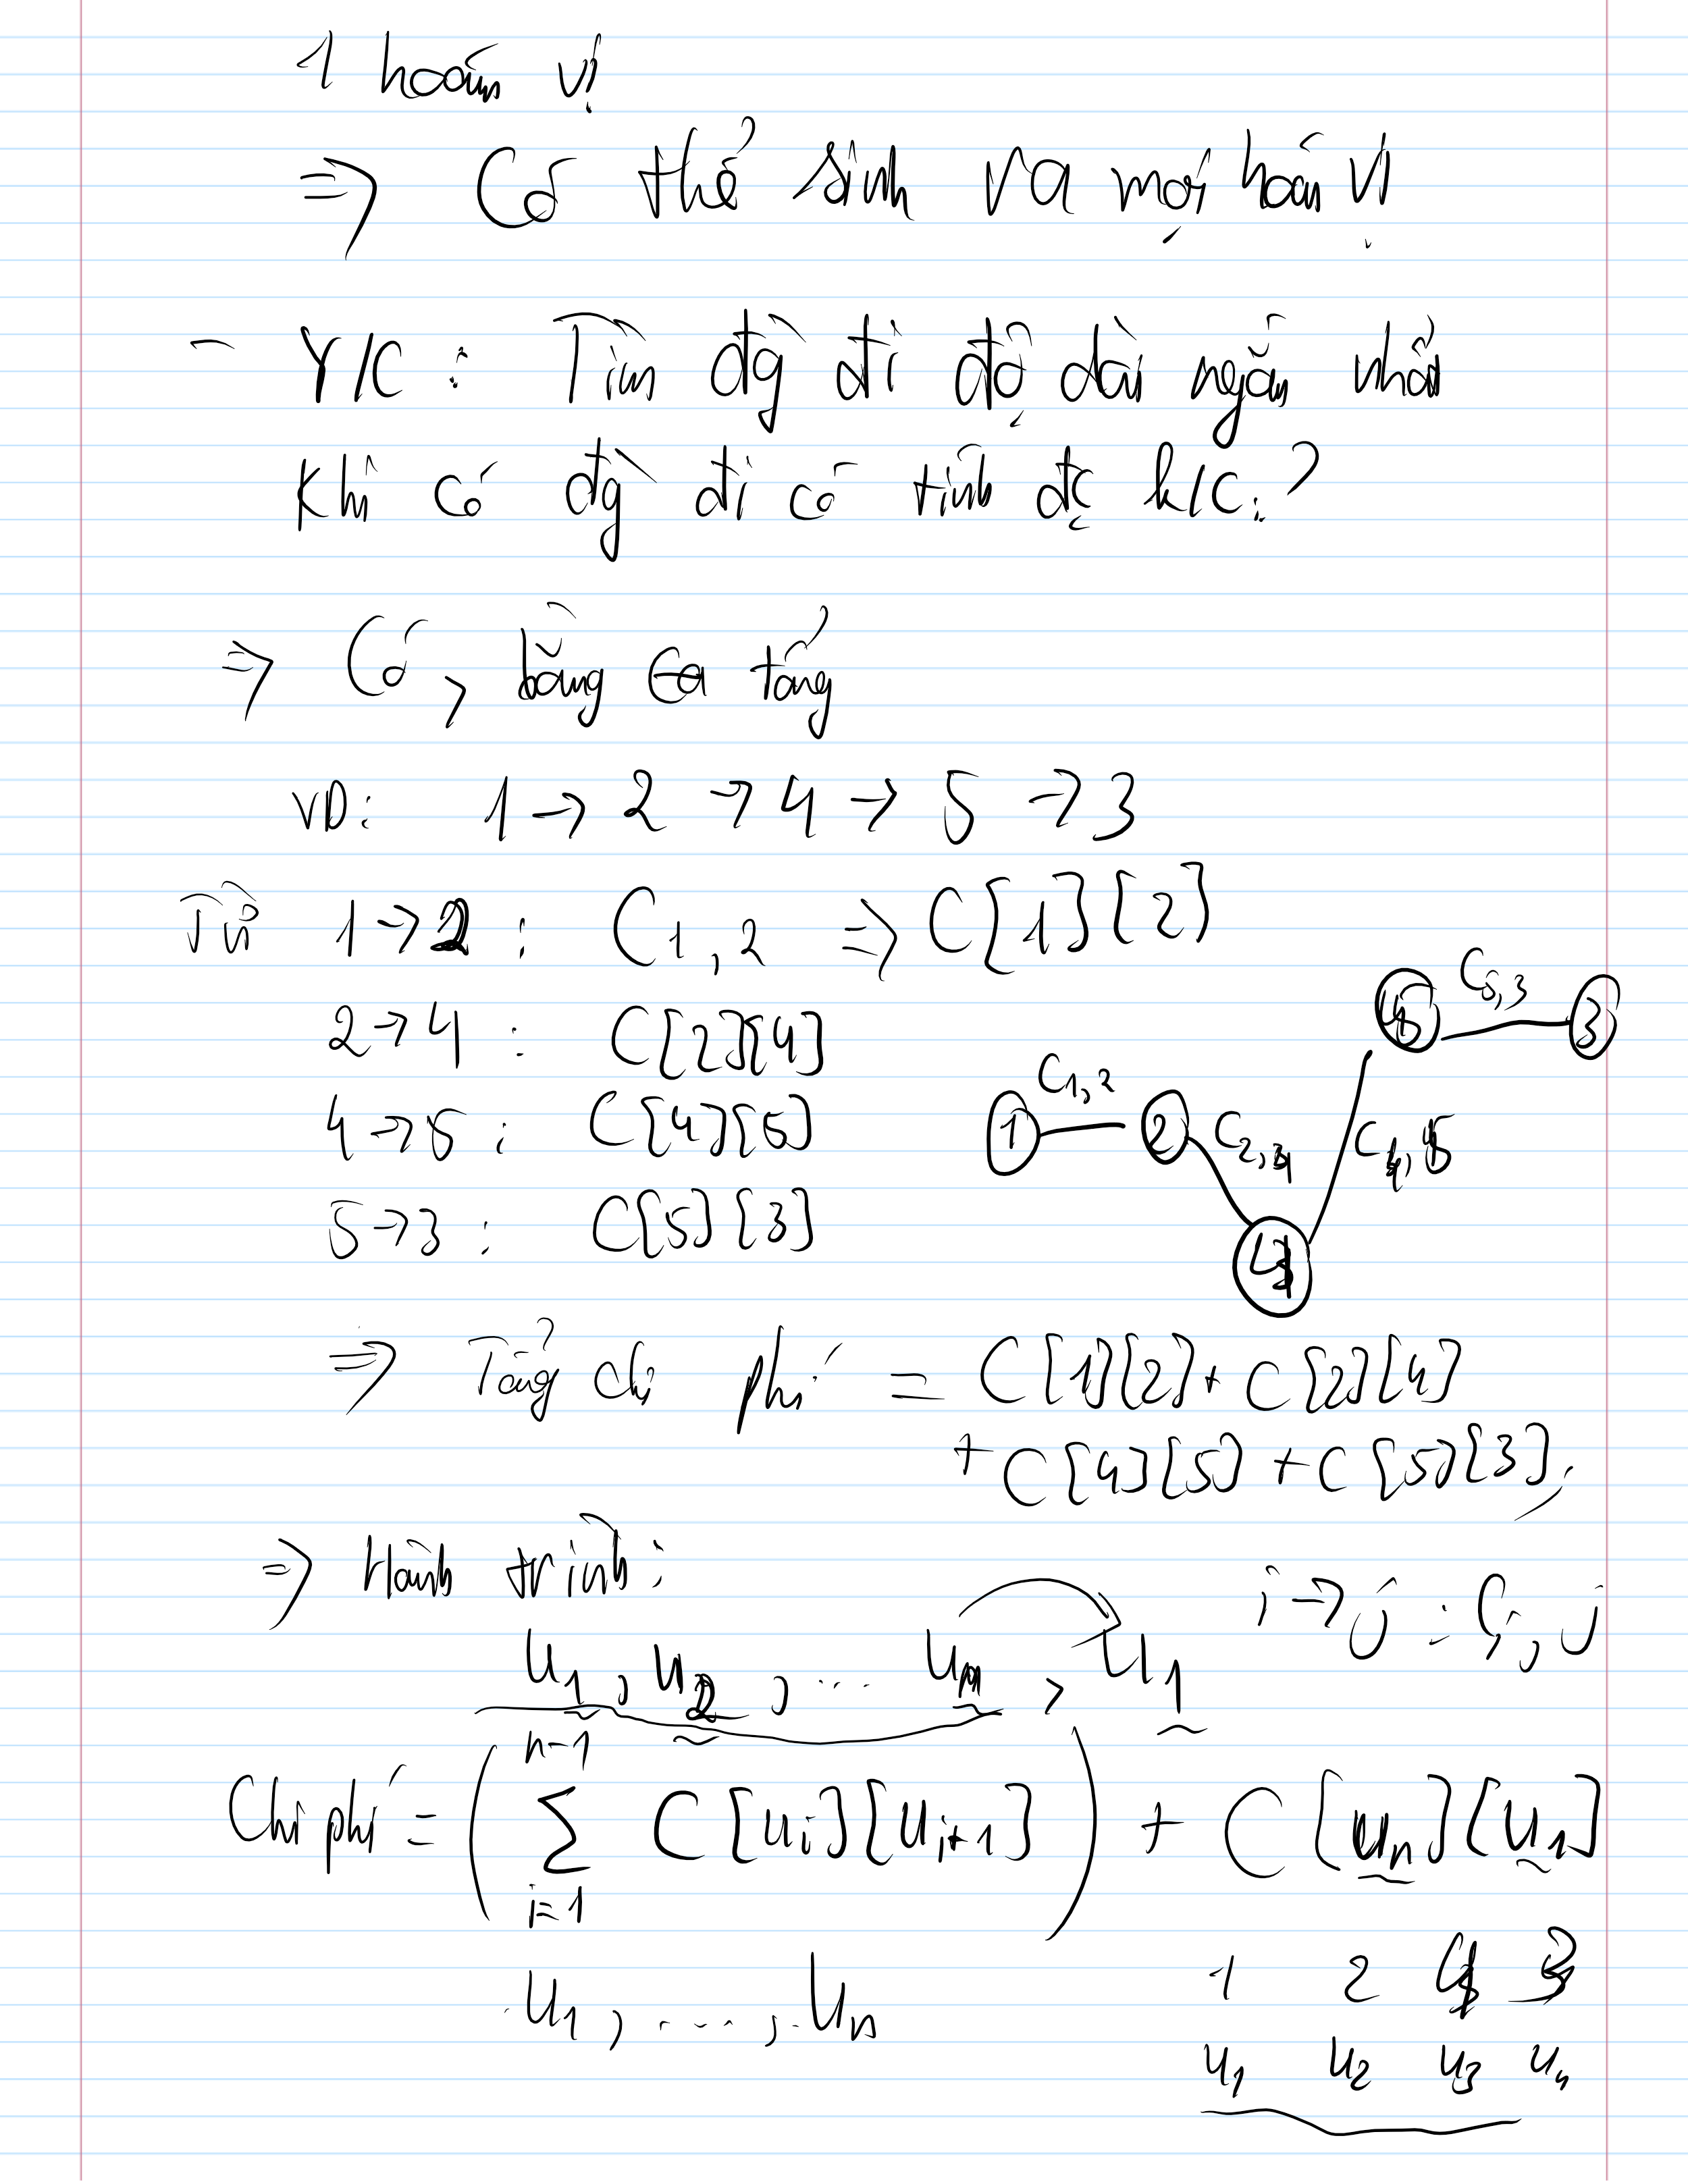 1 hoán vị
⇒ Có thể sinh ra mọi hoán vị
- Y/C : Tìm đg đi độ dài ngắn nhất
Khi có đg đi có tính đc k/c ?
⇒ Có, bằng tổng
VD: 1 → 2 → 4 → 5 → 3
Từ 1 → 2 : C1,2 ⇒ C[1][2]
2 → 4 : C[2][4]
4 → 5 : C[4][5]
5 → 3 : C[5][3]
5 C5,3 3
1 C1,2 2 C2,4 C4,5
4
⇒ Tổng chi phí = C[1][2] + C[2][4]
+ C[4][5] + C[5][3],
⇒ Hành trình:
i → j : Ci,j
u1, u2, ... un, u1
Chi phí = ( n-1 ∑ i=1 C[ui][ui+1] ) + C[un][u1]
u1, ..., un
1 2 4 3
u1 u2 u3 u4